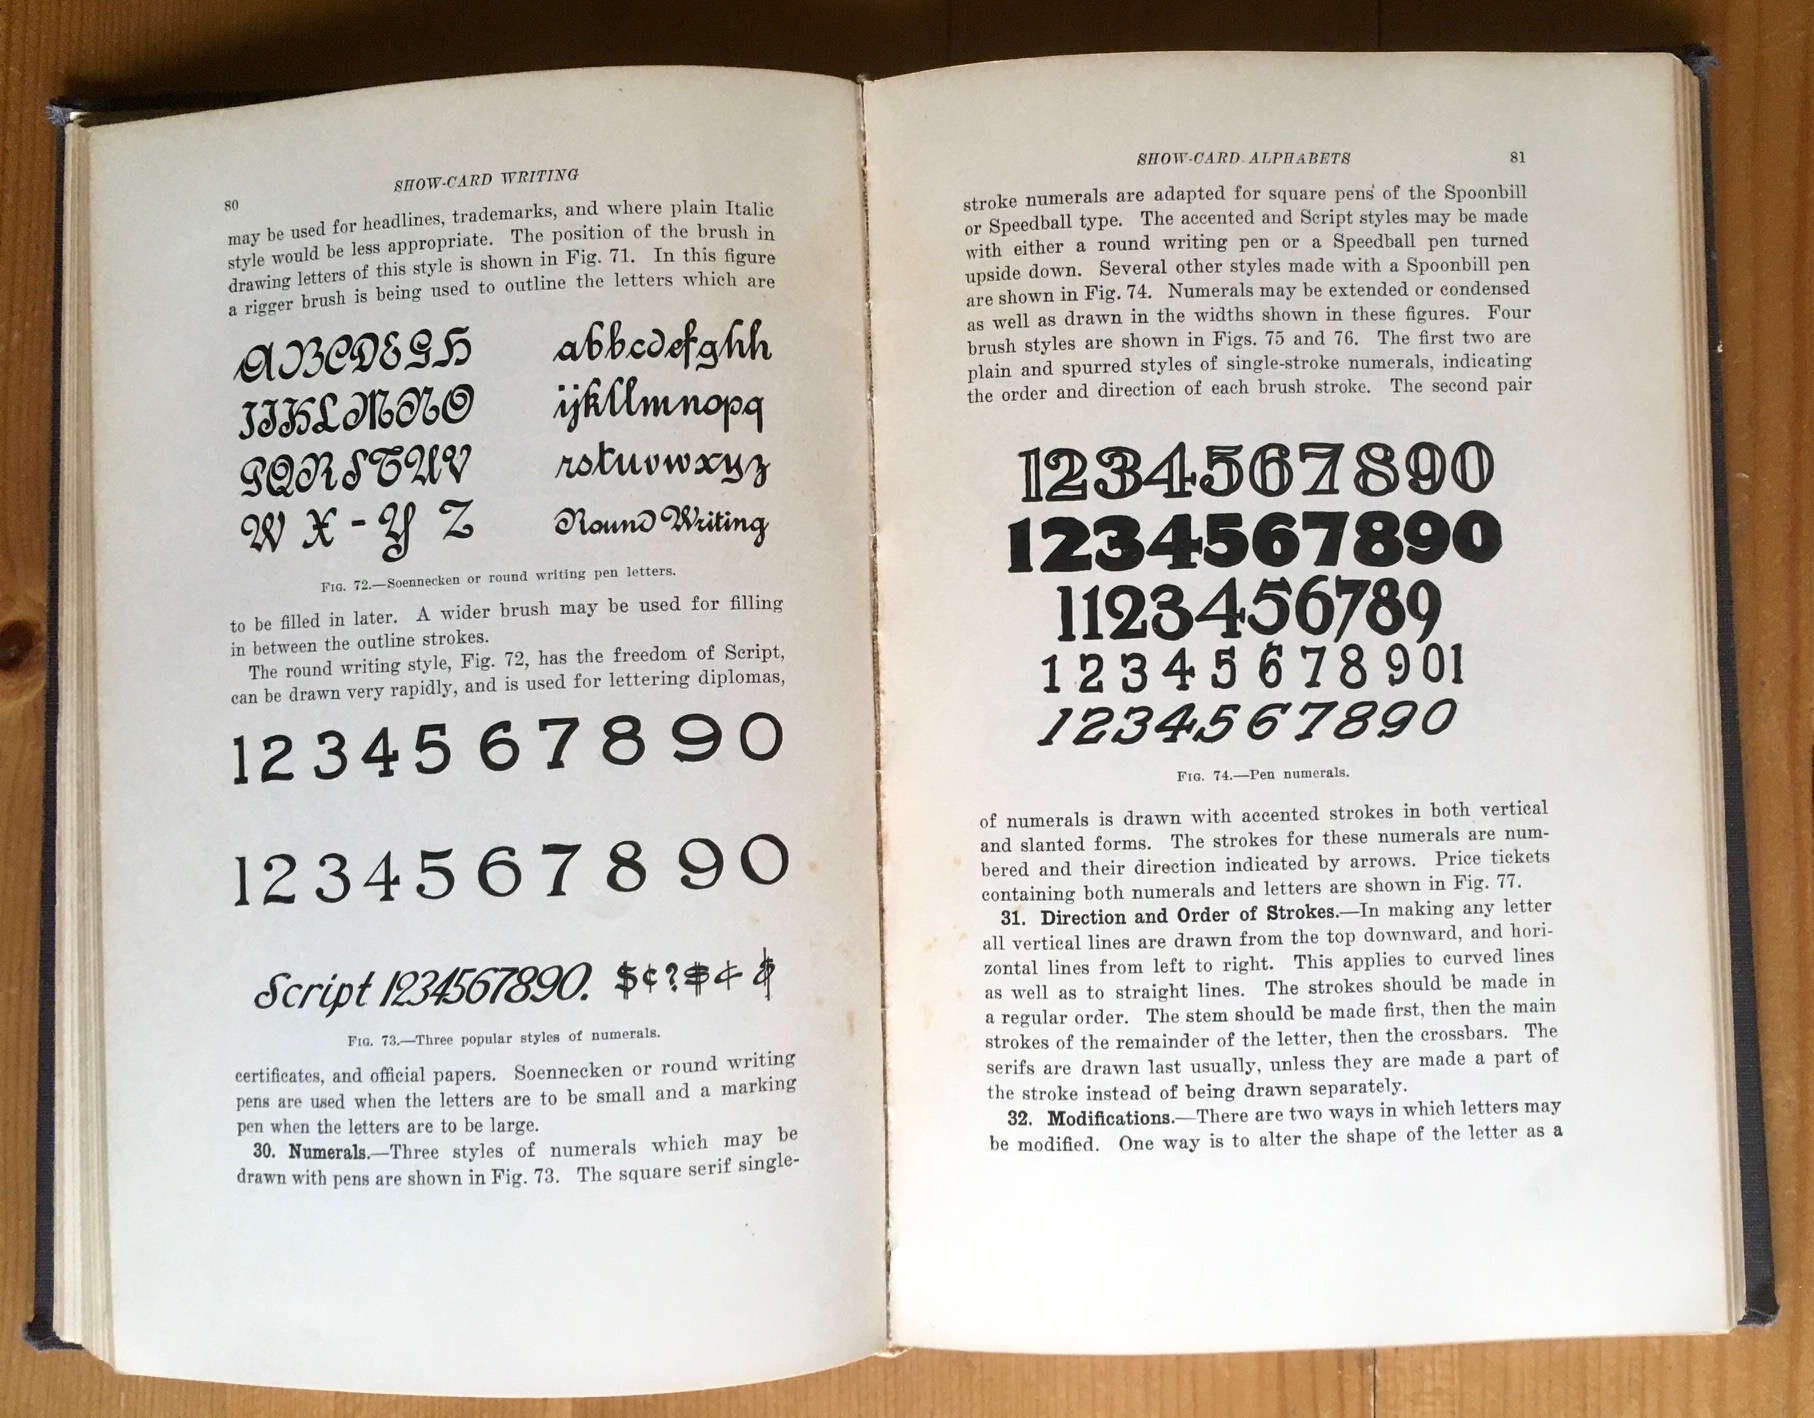 SHOW-CARD WRITING
80
may be used for headlines, trademarks, and where plain Italic
style would be less appropriate. The position of the brush in
drawing letters of this style is shown in Fig. 71. In this figure
a rigger brush is being used to outline the letters which are
ABCDEGH
IJKLMNO
PQRSTUV
W X - Y Z
abbcdefghh
ijkllmnopq
rstuvwxyz
Round Writing
FIG. 72.—Soennecken or round writing pen letters.
to be filled in later. A wider brush may be used for filling
in between the outline strokes.
The round writing style, Fig. 72, has the freedom of Script,
can be drawn very rapidly, and is used for lettering diplomas,
1234567890
1234567890
Script 1234567890. $¢?$¢
FIG. 73.—Three popular styles of numerals.
certificates, and official papers. Soennecken or round writing
pens are used when the letters are to be small and a marking
pen when the letters are to be large.
30. Numerals.—Three styles of numerals which may be
drawn with pens are shown in Fig. 73. The square serif single-
SHOW-CARD ALPHABETS
81
stroke numerals are adapted for square pens of the Spoonbill
or Speedball type. The accented and Script styles may be made
with either a round writing pen or a Speedball pen turned
upside down. Several other styles made with a Spoonbill pen
are shown in Fig. 74. Numerals may be extended or condensed
as well as drawn in the widths shown in these figures. Four
brush styles are shown in Figs. 75 and 76. The first two are
plain and spurred styles of single-stroke numerals, indicating
the order and direction of each brush stroke. The second pair
1234567890
1234567890
1123456789
12345678901
1234567890
FIG. 74.—Pen numerals.
of numerals is drawn with accented strokes in both vertical
and slanted forms. The strokes for these numerals are num-
bered and their direction indicated by arrows. Price tickets
containing both numerals and letters are shown in Fig. 77.
31. Direction and Order of Strokes.—In making any letter
all vertical lines are drawn from the top downward, and hori-
zontal lines from left to right. This applies to curved lines
as well as to straight lines. The strokes should be made in
a regular order. The stem should be made first, then the main
strokes of the remainder of the letter, then the crossbars. The
serifs are drawn last usually, unless they are made a part of
the stroke instead of being drawn separately.
32. Modifications.—There are two ways in which letters may
be modified. One way is to alter the shape of the letter as a